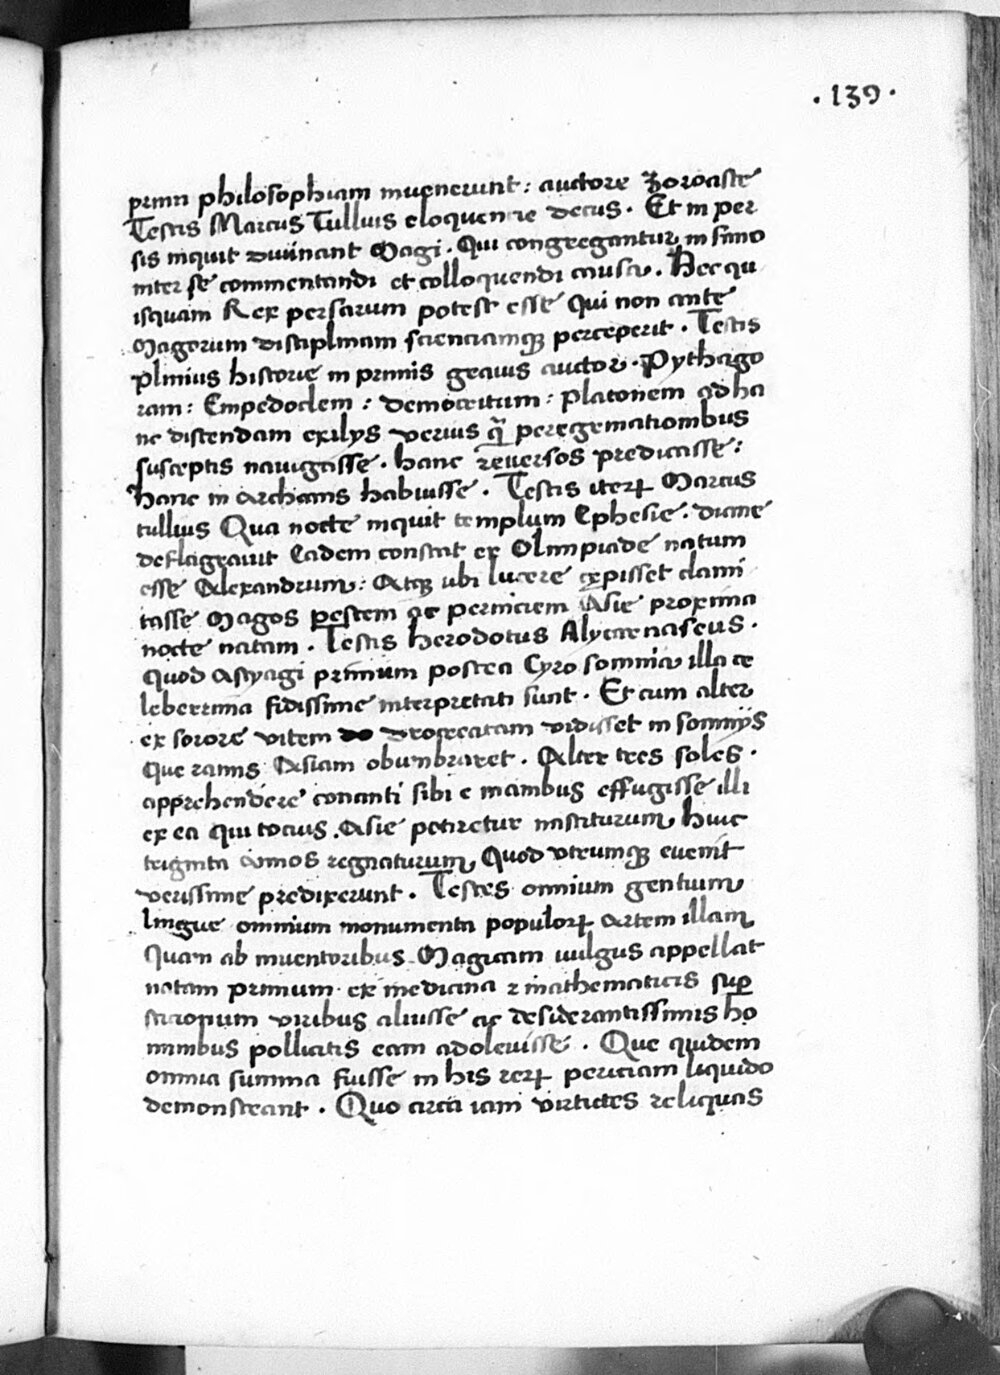 .139.
primi philosophiam inuenerunt: auctore Zoroaste
Testis Marcus Tullius eloquentie decus. Et in per
sis inquit diuinant Magi. Qui congregantur in fano
inter se commentandi et colloquendi causa. Nec qu
isquam Rex persarum potest esse Qui non ante
Magorum disciplinam scienciamqꝫ perceperit. Testis
plinius historie in primis grauis auctor. Pythago
ram: Empedoclem: democritum: Platonem ad ha
nc discendam exilijs verius q̃ peregrinationibus
susceptis nauigasse. hanc reuersos predicasse:
hanc in archanis habuisse. Testis iterꝝ Marcus
tullius Qua nocte inquit templum Ephesie. diane
deflagrauit Eadem constat ex Olimpiade natum
esse Alexandrum: Atqꝫ ubi lucere cepisset clami
tasse Magos pestem ac perniciem Asie proxima
nocte natam. Testis herodotus Alycarnaseus.
Quod Astyagi primum postea Cyro somnia illa ce
leberrima fidissime interpretati sunt. Et cum alter
ex sorore vitem procreatam vidisset in somnijs
Que ramis Asiam obumbraret. Alter tres soles.
apprehendere conanti sibi e manibus effugisse illi
ex ea qui tocius. Asie potiretur nasciturum huic
triginta annos regnaturum, Quod vtrumqꝫ euenit
verissime predixerunt. Testes omnium gentium
lingue omnium monumenta populorꝝ artem illam
Quam ab inuentoribus Magicam uulgus appellat
natam primum ex medicina ⁊ mathematicis sup
sticionum viribus aluisse ac desiderantissimis ho
minibus pollicitis eam adoleuisse. Que quidem
omnia summa fuisse in his rerꝝ periciam liquido
demonstrant. Quo circa iam virtutes reliquas